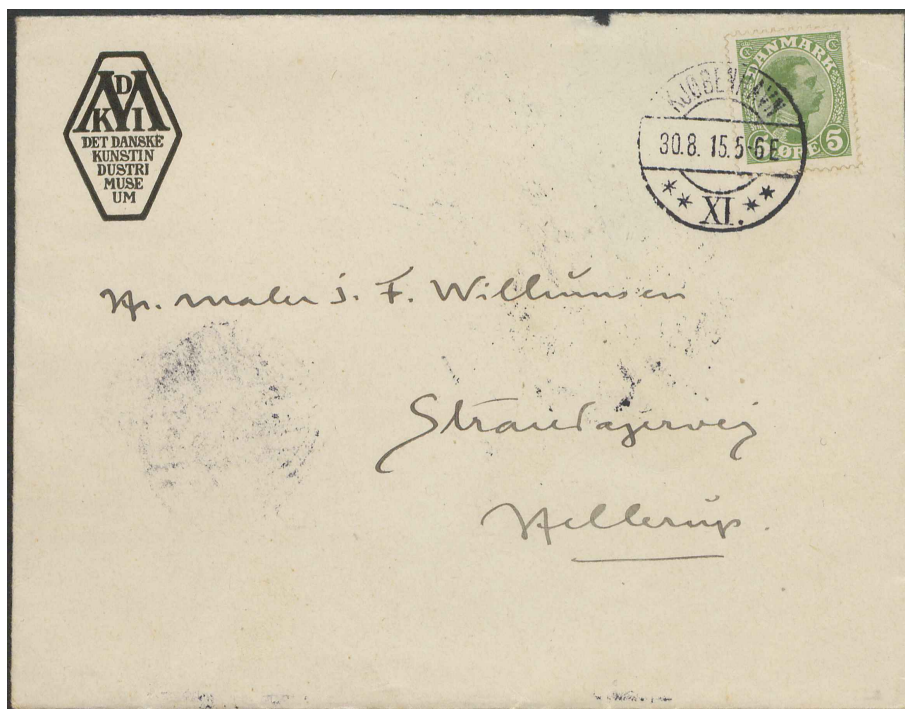 KDMI
DET DANSKE
KUNSTIN
DUSTRI
MUSE
UM
DANMARK
5 ØRE 5
KJØBENHAVN
30.8. 15.5-6 E
** XI. **
Hr. Maler J. F. Willumsen
Strandagervej
Hellerup.